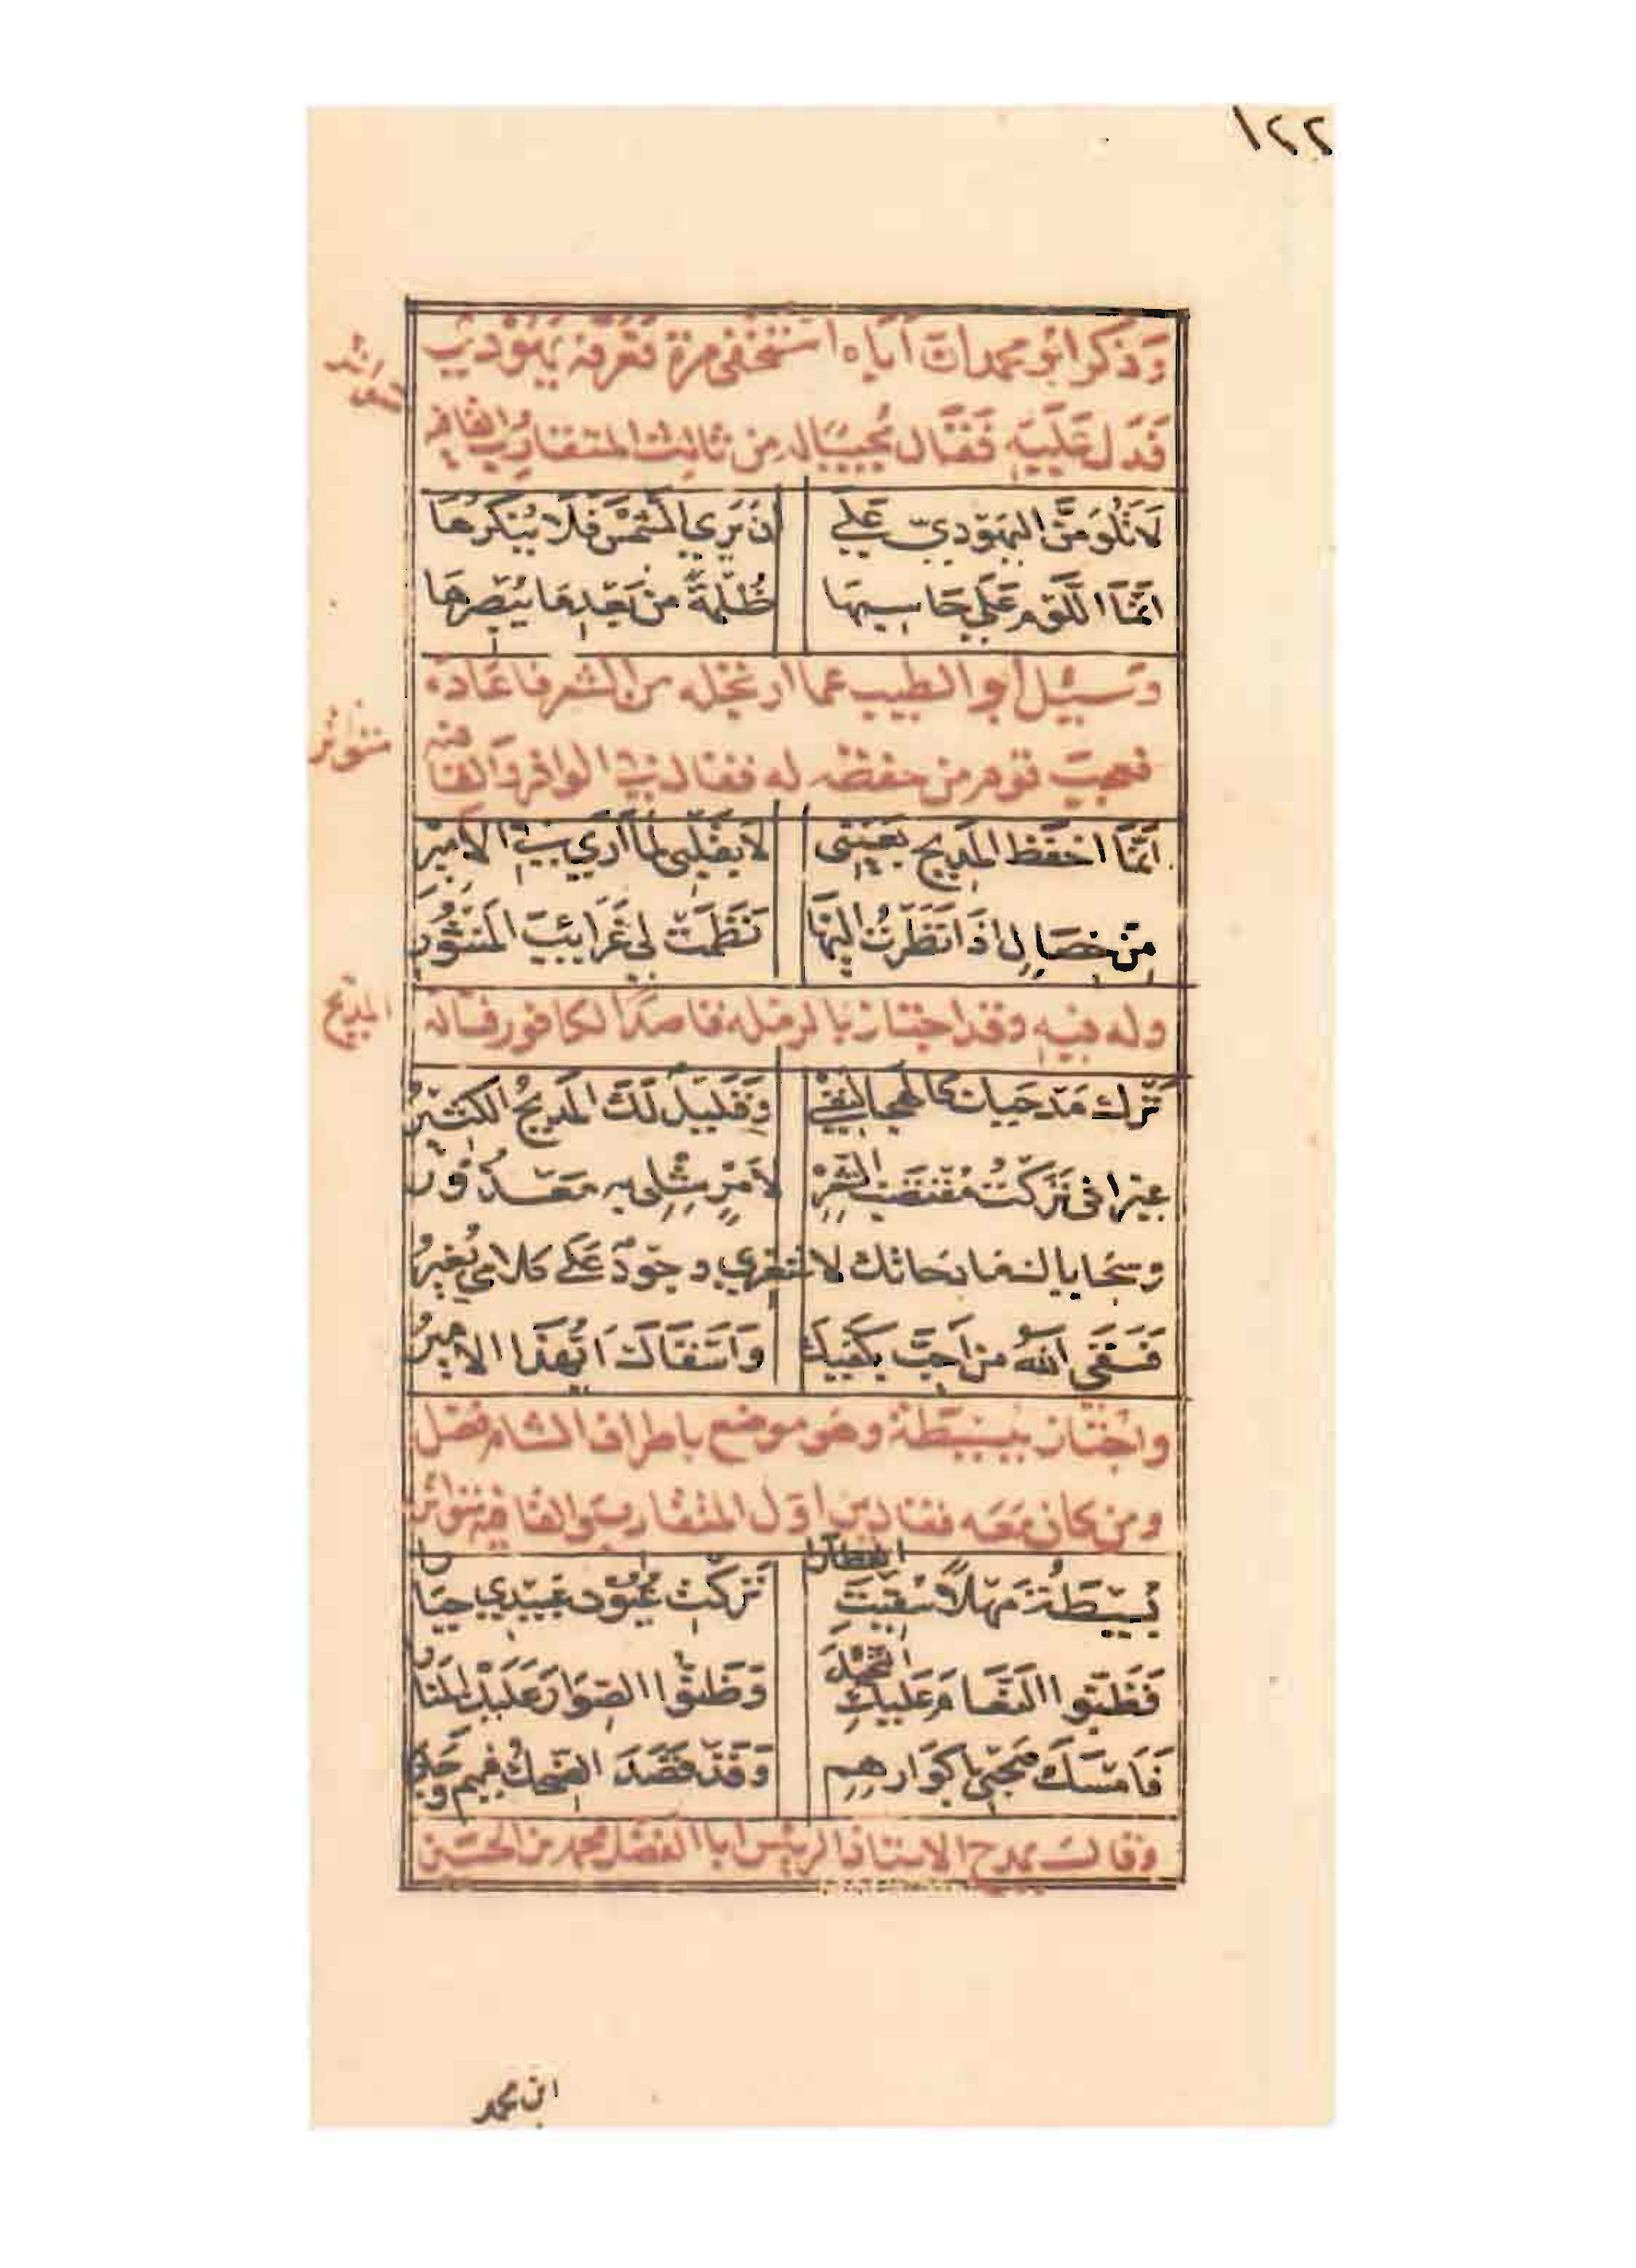 ١٢٢
وَذكر ابو محمد ان اَباه استخفى مرة فَعَرفه يَهُودي
فَدَل عَلَيهِ فَقَال مُجيبًا له من ثالث المتقارب القافيه
لَا تَلُومَنَّ اليَهودي عَلى    ان يَرى الشمسَ فَلَا يُنكرهَا
اِنَّمَا اللَّوم عَلى حَاسبهَا    ظُلمَةً من بَعدِ مَا يُبصِرهَا
وسئل ابو الطيب عما ارتجله من الشعر فاعَاده
متواتر
فعجب قوم من حفظه له فقال في الوافر والقافيه
اِنَّمَا احفَظ المَديح بعَينى    لَا بقَلبى لمَا اَرى في الامير
مِن خصَال اذا نَظَرتُ اليهَا    نَظَمَت لي غَرَائبَ المنثُور
المديح
وله فيه وقد اجتاز بالرمله قاصدًا لكافور فساله
تَرك مَدحيك كالهجا لنفسي    وَقَليل لَكَ المَديحُ الكثيرُ
غير انى تَرَكتُ مُقتَضَب الشعر    لاَمرٍ مثلى به مَعذُورُ
وسجاياك لا    وجودٌ عَلَى كلامى يُغيرُ
فَسَقَى اللهُ من اُحبّ بكَفيكَ    وَاسقَاكَ ايّهَذا الاميرُ
واجتاز ببسيطة وهو موضع باطراف الشام فضل
ومن كان مَعَه فقال من اوّل المتقارب والقافيه متواتر
بُسَيطَةُ مَهلًا سُقيتَ القطارا    تَركتِ عُيُون عَبيدي حيَارا
فَظَنّوا النعَامَ عَليكِ النخلَ    وَظَنّوا الصوَارَ عَلَيكِ المنَارا
فَامسَكَ صَحبي باكوَارهم    وَقَد قَصَدَ الضحكُ فيهم وجَارا
وقال يمدح الاستاذ الرئيس ابا الفضل محمد بن الحسين
ابن محمد